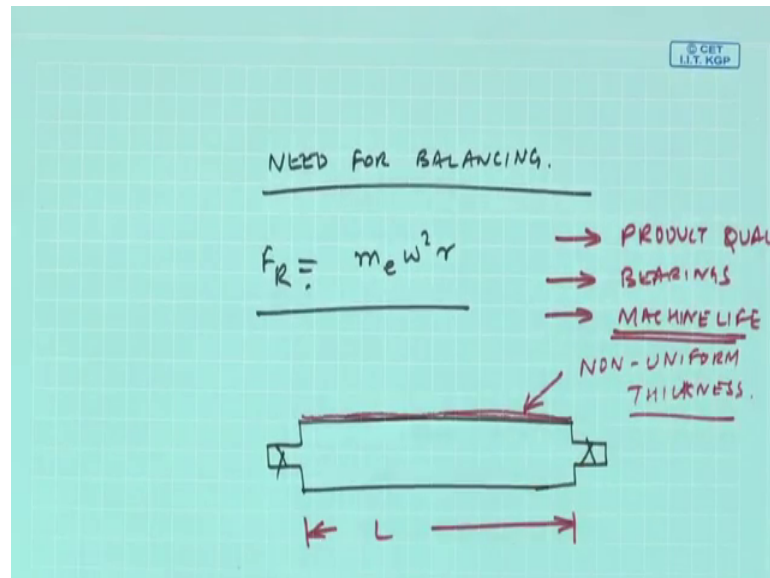 © CET
I.I.T. KGP
NEED FOR BALANCING.
F_R = m_e ω² r
→ PRODUCT QUAL
→ BEARINGS
→ MACHINE LIFE
NON-UNIFORM
THICKNESS.
L